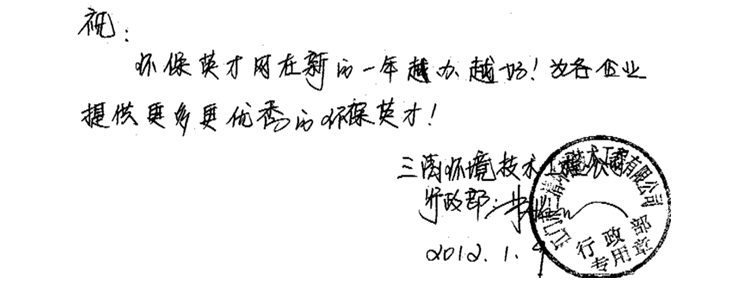 祝：
环保英才网在新的一年越办越好！为各企业
提供更多更优秀的环保英才！
三清环境技术工程
行政部：
2012.1.9
江门市三清环境技术工程有限公司
行政部
专用章